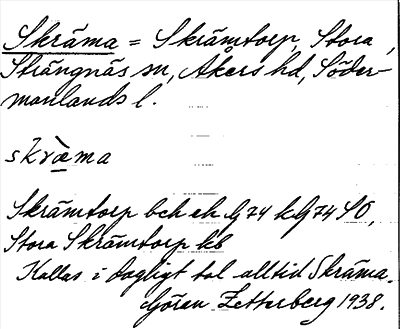 Skräma = Skrämtorp, Stora,
Strängnäs sn, Åkers hd, Söder-
manlands l.
skræ̀ma
Skrämtorp bch eh G74 kG74 SO,
Stora Skrämtorp kb
Kallas i dagligt tal alltid Skräma.
Göran Zetterberg 1938.